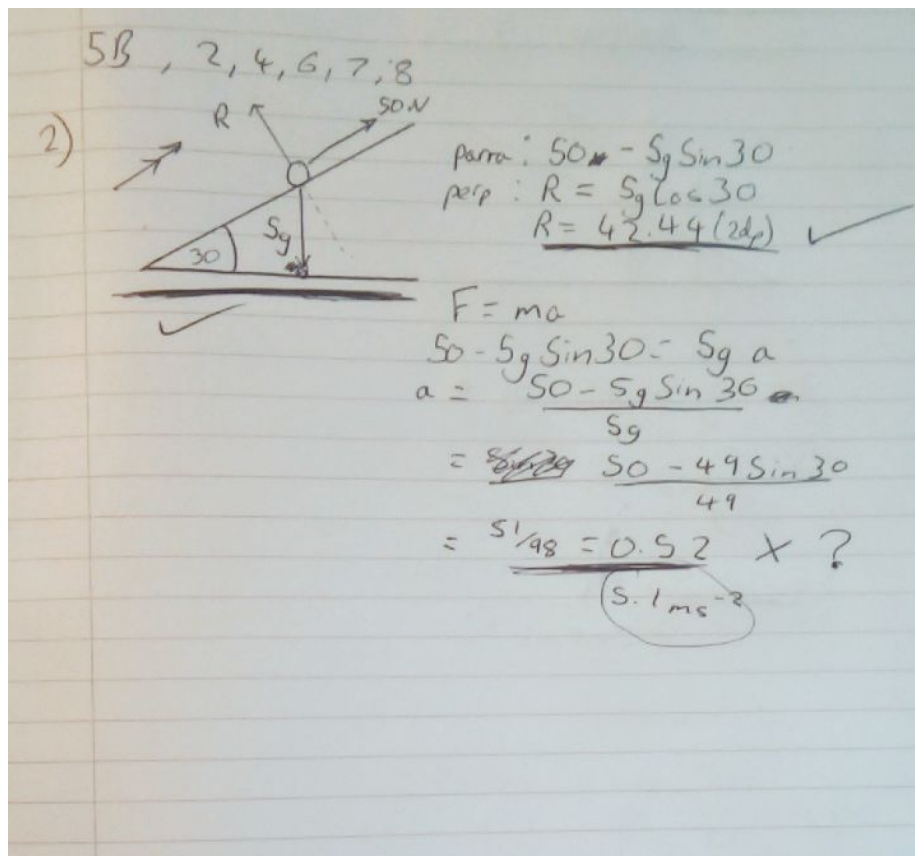 5B , 2, 4, 6, 7, 8
2)
R
50N
30
5g
parra : 50 - 5g Sin 30
perp : R = 5g Cos 30
R = 42.44 (2dp)
F = ma
50 - 5g Sin 30 = 5g a
a = 50 - 5g Sin 30
5g
= 50 - 49 Sin 30
49
= 51/98 = 0.52 × ?
5.1 ms⁻²